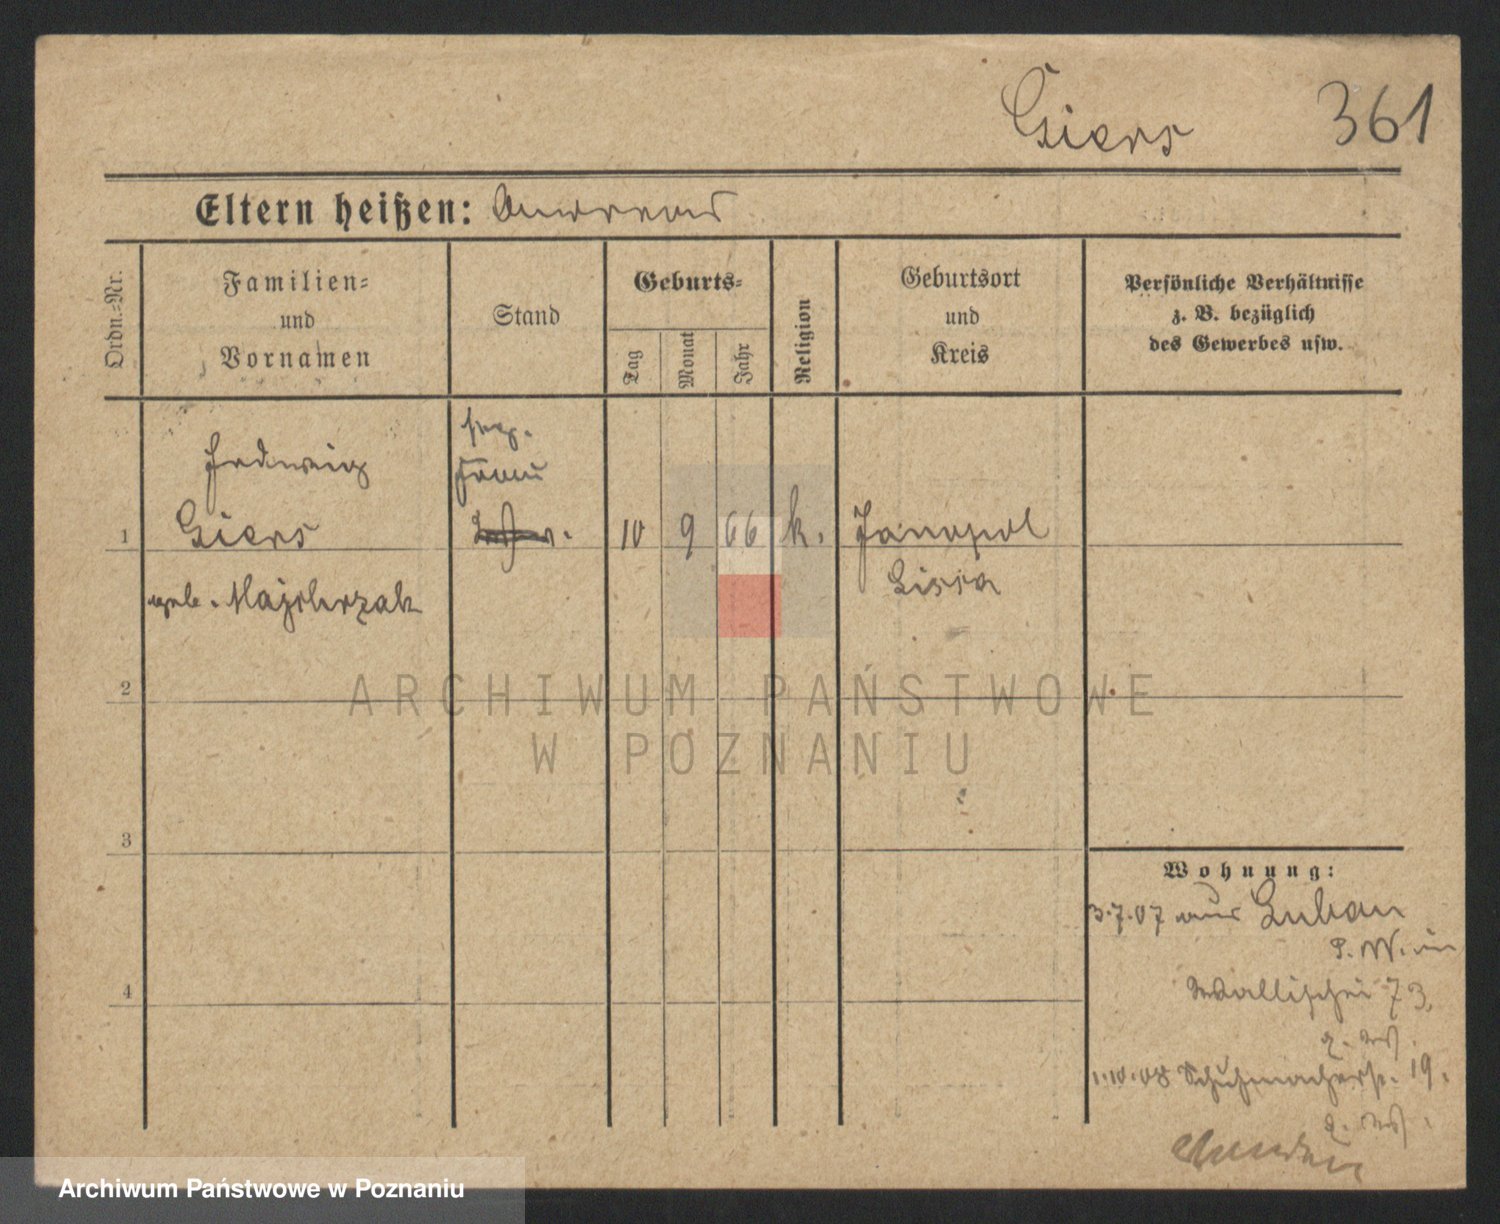 Giers 361
Eltern heißen: Andreas
Ordn.=Nr.
Familien=
und
Vornamen
Stand
Geburts=
Tag
Monat
Jahr
Religion
Geburtsort
und
Kreis
Persönliche Verhältnisse
z. B. bezüglich
des Gewerbes usw.
Hedwig
Frau
1 Giers 10 9 66 k. Janopol
geb. Majchrzak Lissa
2
ARCHIWUM PAŃSTWOWE
W POZNANIU
3
Wohnung:
3.7.07 aus Luban
P. W. in
4
Wallischei 73,
1.10.08 Schuhmacherstr. 19.
Archiwum Państwowe w Poznaniu